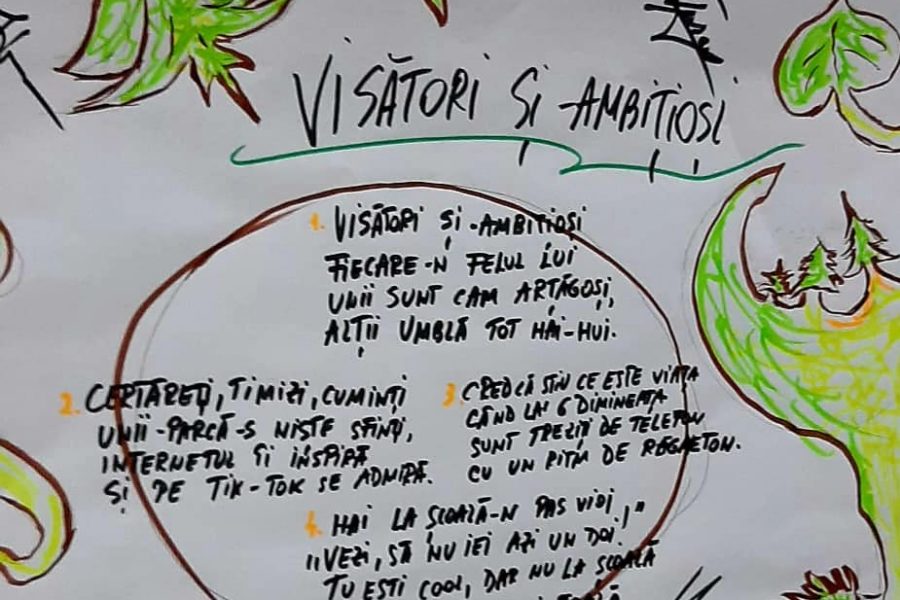 VISĂTORI ȘI AMBIȚIOȘI
1. VISĂTORI ȘI AMBITIOȘI
FIECARE-N FELUL LUI
UNII SUNT CAM ARȚĂGOȘI,
ALȚII UMBLĂ TOT HĂI-HUI.
2. CERTĂREȚI, TIMIZI, CUMINȚI
UNII-PARCĂ-S NISTE SFINȚI,
INTERNETUL ÎI INSPIRĂ
ȘI PE TIK-TOK SE ADMIRĂ.
3 CRED CĂ STIU CE ESTE VIATA
CÂND LA 6 DIMINEATA
SUNT TREZIȚI DE TELEFON
CU UN RITM DE REGGAETON.
4. HAI LA ȘCOALĂ-N PAS VIOI,"
"VEZI, SĂ NU IEI AZI UN DOI.
TU ESTI COOL, DAR NU LA SCOALĂ